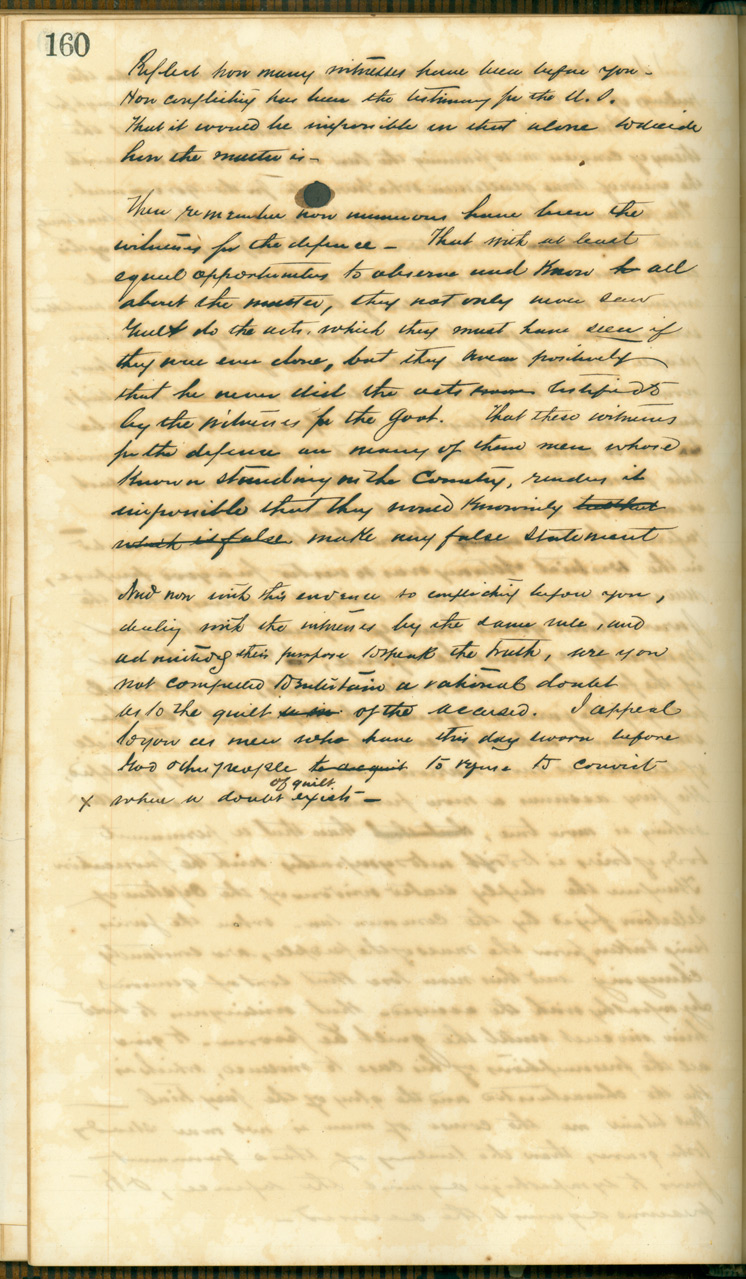 160
Reflect how many witnesses have been before you -
How conflicting has been the testimony for the U. S.
That it would be impossible on that alone to decide
how the matter is -
Then remember how numerous have been the
witnesses for the defence - That with at least
equal opportunities to observe and know to all
about the matter, they not only never saw
do the acts which they must have seen if
they were ever done, but they swear positively
that he never did the acts testified to
by the witnesses for the Govt. That these witnesses
for the defence are many of them men whose
known standing in the Country, renders it
impossible that they would knowingly
which is false make any false statement
And now with this evidence so conflicting before you,
dealing with the witnesses by the same rule, and
admitting their purpose to speak the truth, are you
not compelled to entertain a rational doubt
as to the guilt of the accused. I appeal
to you as men who have this day sworn before
God & this people to acquit to refuse to convict
of guilt
x where a doubt exists -